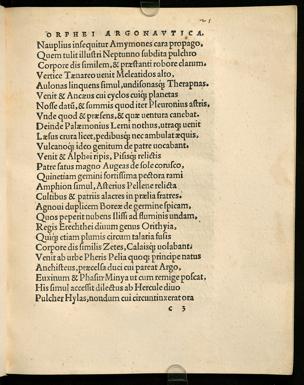 ORPHEI ARGONAVTICA.
Nauplius insequitur Amymones cara propago,
Quem tulit illustri Neptunno subdita pulchro
Corpore dis similem, & præstanti robore clarum.
Vertice Tænareo uenit Meleatidos alto,
Aulonas linquens simul, undisonasq; Therapnas.
Venit & Ancæus cui cyclos cuiq; planetas
Nosse datū, & summis quod iter Pleuronius astris,
Vnde quod & præsens, & quæ uentura canebat.
Deinde Palæmonius Lerni nothus, utraq; uenit
Læsus crura licet, pedibusq; nec ambulat æquis,
Vulcanoq; ideo genitum de patre uocabant.
Venit & Alphei ripis, Pisisq; relictis
Patre satus magno Augeas de sole corusco,
Quinetiam gemini fortissima pectora rami
Amphion simul, Asterius Pellene relicta
Cultibus & patriis alacres in prælia fratres.
Agnoui duplicem Boreæ de germine spicam,
Quos peperit nubens Ilissi ad fluminis undam,
Regis Erechthei diuum genus Orithyia,
Quiq; etiam plumis circum talaria fusis
Corpore dis similis Zetes, Calaisq; uolabant.
Venit ab urbe Pheris Pelia quoq; principe natus
Anchisteus, præcelsa duci cui pareat Argo,
Euxinum & Phasin Minya ut cum remige poscat,
His simul accessit dilectus ab Hercule diuo
Pulcher Hylas, nondum cui circuntinxerat ora
c 3